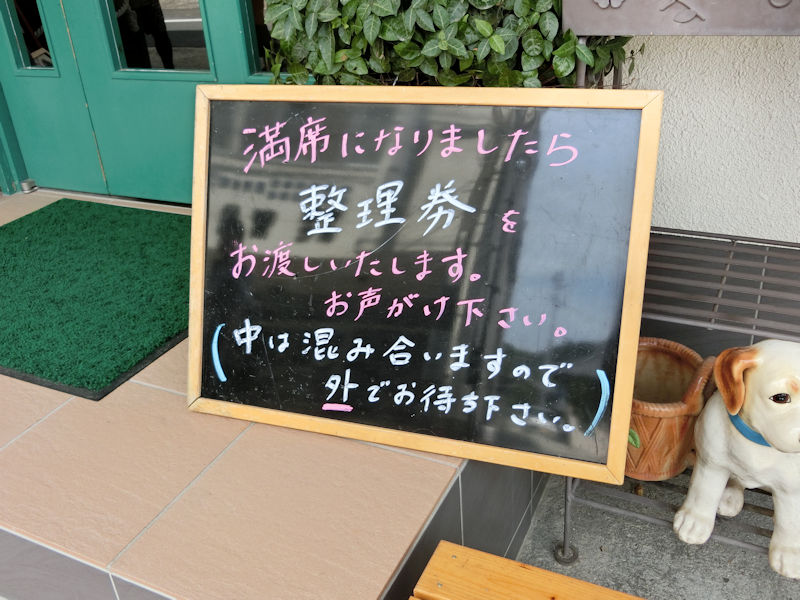 満席になりましたら
整理券を
お渡しいたします。
お声がけ下さい。
(中は混み合いますので
外でお待ち下さい。)